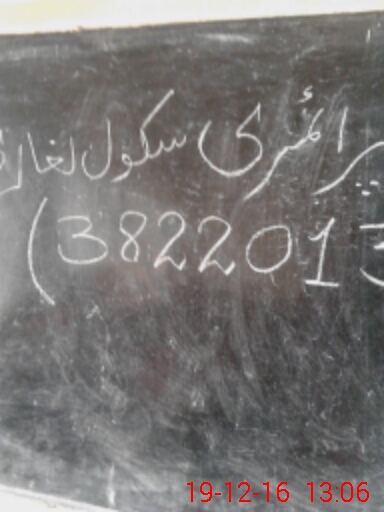 پرائمری سکول لغاری
(3822013
19-12-16 13:06